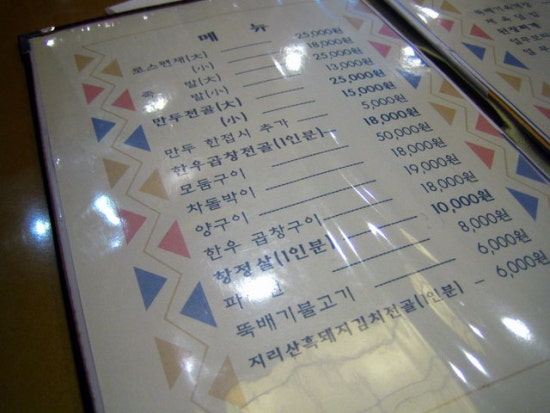 메 뉴
로스편채(大) 25,000원
(小) 18,000원
족 발(大) 25,000원
발(小) 13,000원
만두전골(大) 25,000원
(小) 15,000원
만두 한접시 추가 5,000원
한우곱창전골(1인분) 18,000원
모듬구이 50,000원
차돌박이 18,000원
양구이 19,000원
한우 곱창구이 18,000원
항정살(1인분) 10,000원
파 8,000원
뚝배기불고기 6,000원
지리산흑돼지김치전골(1인분) 6,000원